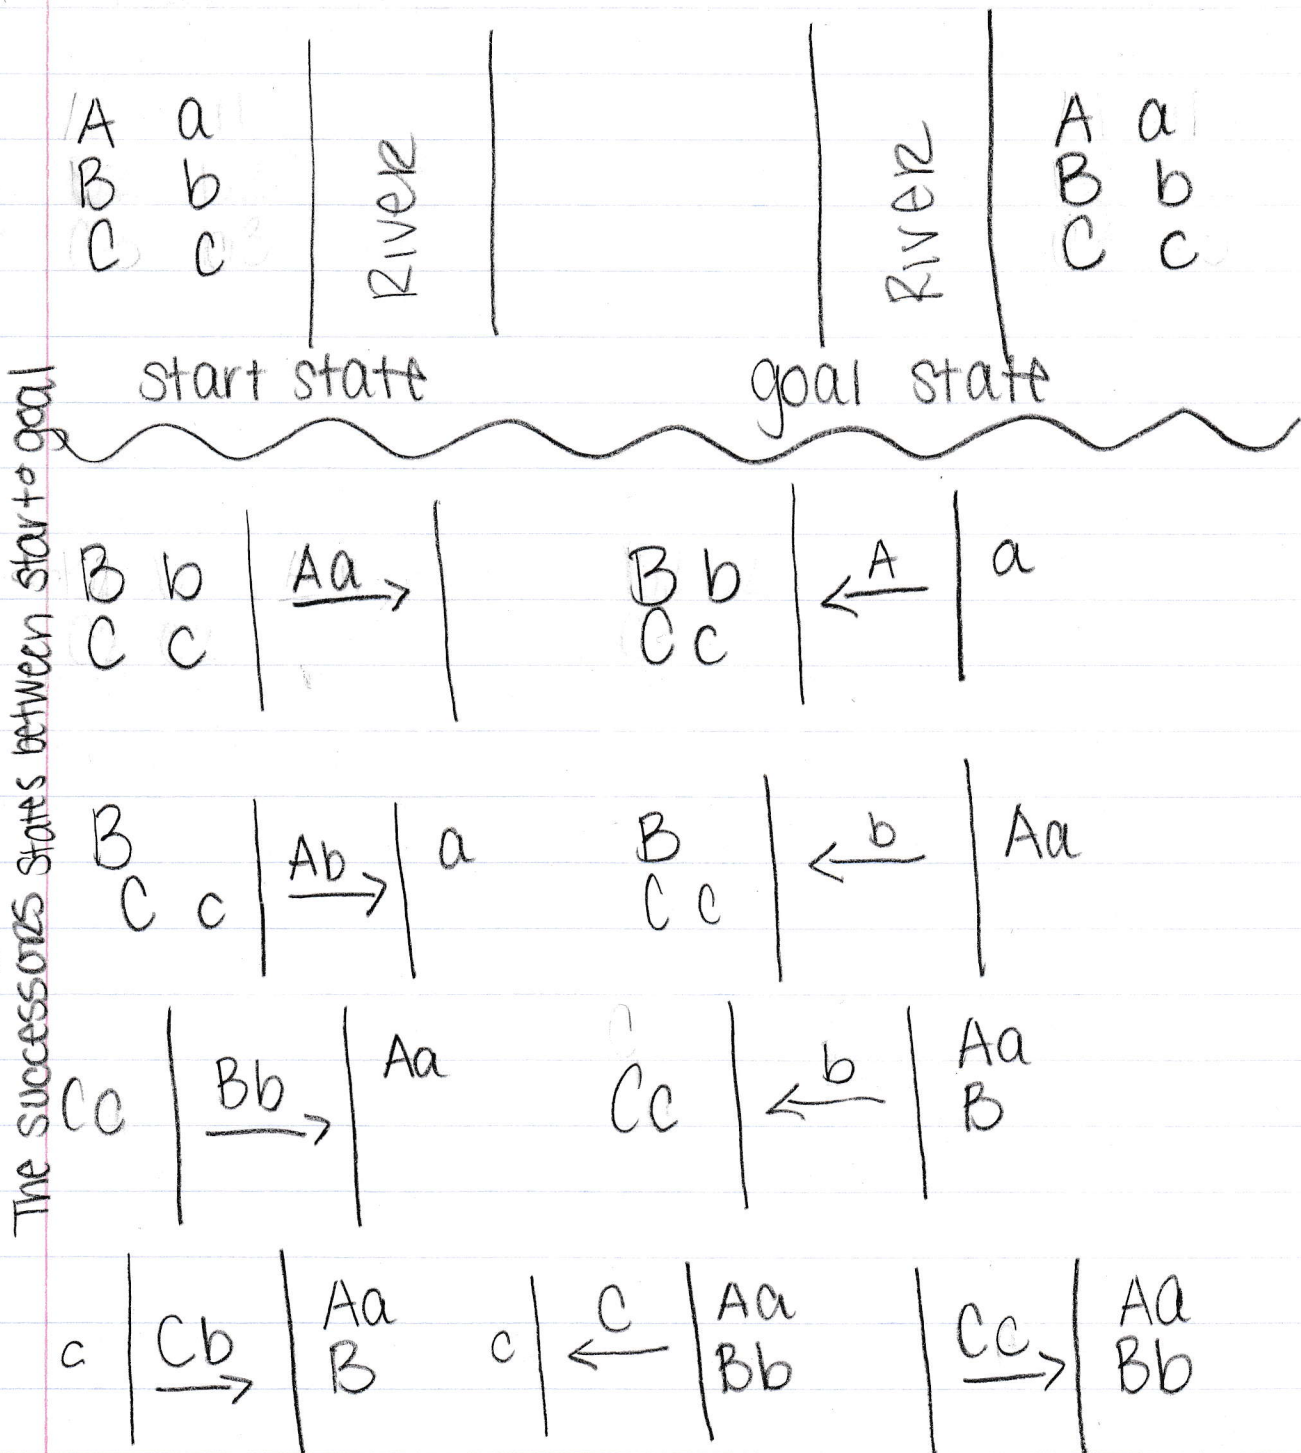 A a
B b
C c
River
River
A a
B b
C c
start state
goal state
The successors states between start & goal
B b
C c
Aa
B b
C c
A
a
B
C c
Ab
a
B
C c
b
Aa
Cc
Bb
Aa
Cc
b
Aa
B
c
Cb
Aa
B
c
C
Aa
Bb
Cc
Aa
Bb